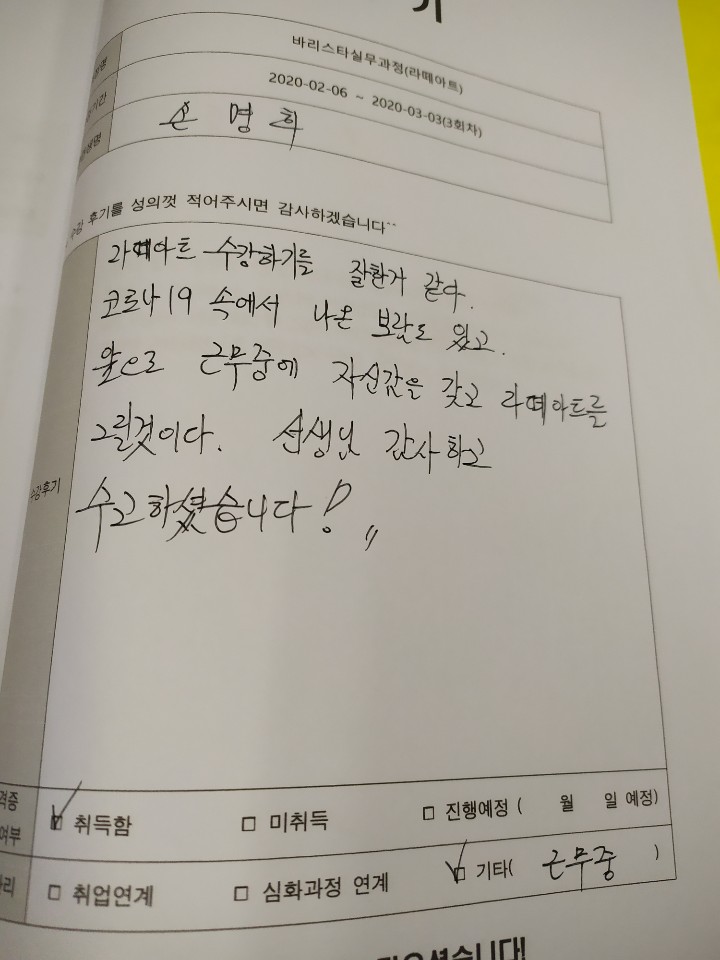 기
바리스타실무과정(라떼아트)
2020-02-06 ~ 2020-03-03(3회차)
손 명 희
후기를 성의껏 적어주시면 감사하겠습니다~~
라떼아트 수강하기를 잘한거 같다.
코로나19 속에서 나온 보람도 있고.
앞으로 근무중에 자신값을 갖고 라떼아트를
그릴것이다. 선생님 감사하고
수강후기
수고하셨습니다!〃
격증
여부
☑ 취득함 □ 미취득 □ 진행예정 ( 월 일 예정)
□ 취업연계 □ 심화과정 연계 ☑ 기타( 근무중 )